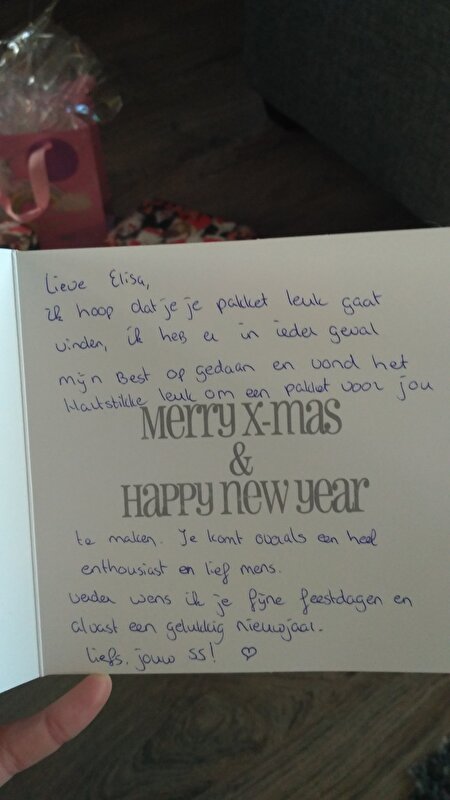 Lieve Elisa,
ik hoop dat je je pakket leuk gaat
vinden, ik heb er in ieder geval
mijn Best op gedaan en vond het
Hartstikke leuk om een pakket voor jou
Merry X-mas
&
Happy new year
te maken. Je komt over als een heel
enthousiast en lief mens.
verder wens ik je fijne feestdagen en
alvast een gelukkig nieuwjaar.
liefs, jouw SS! ♡